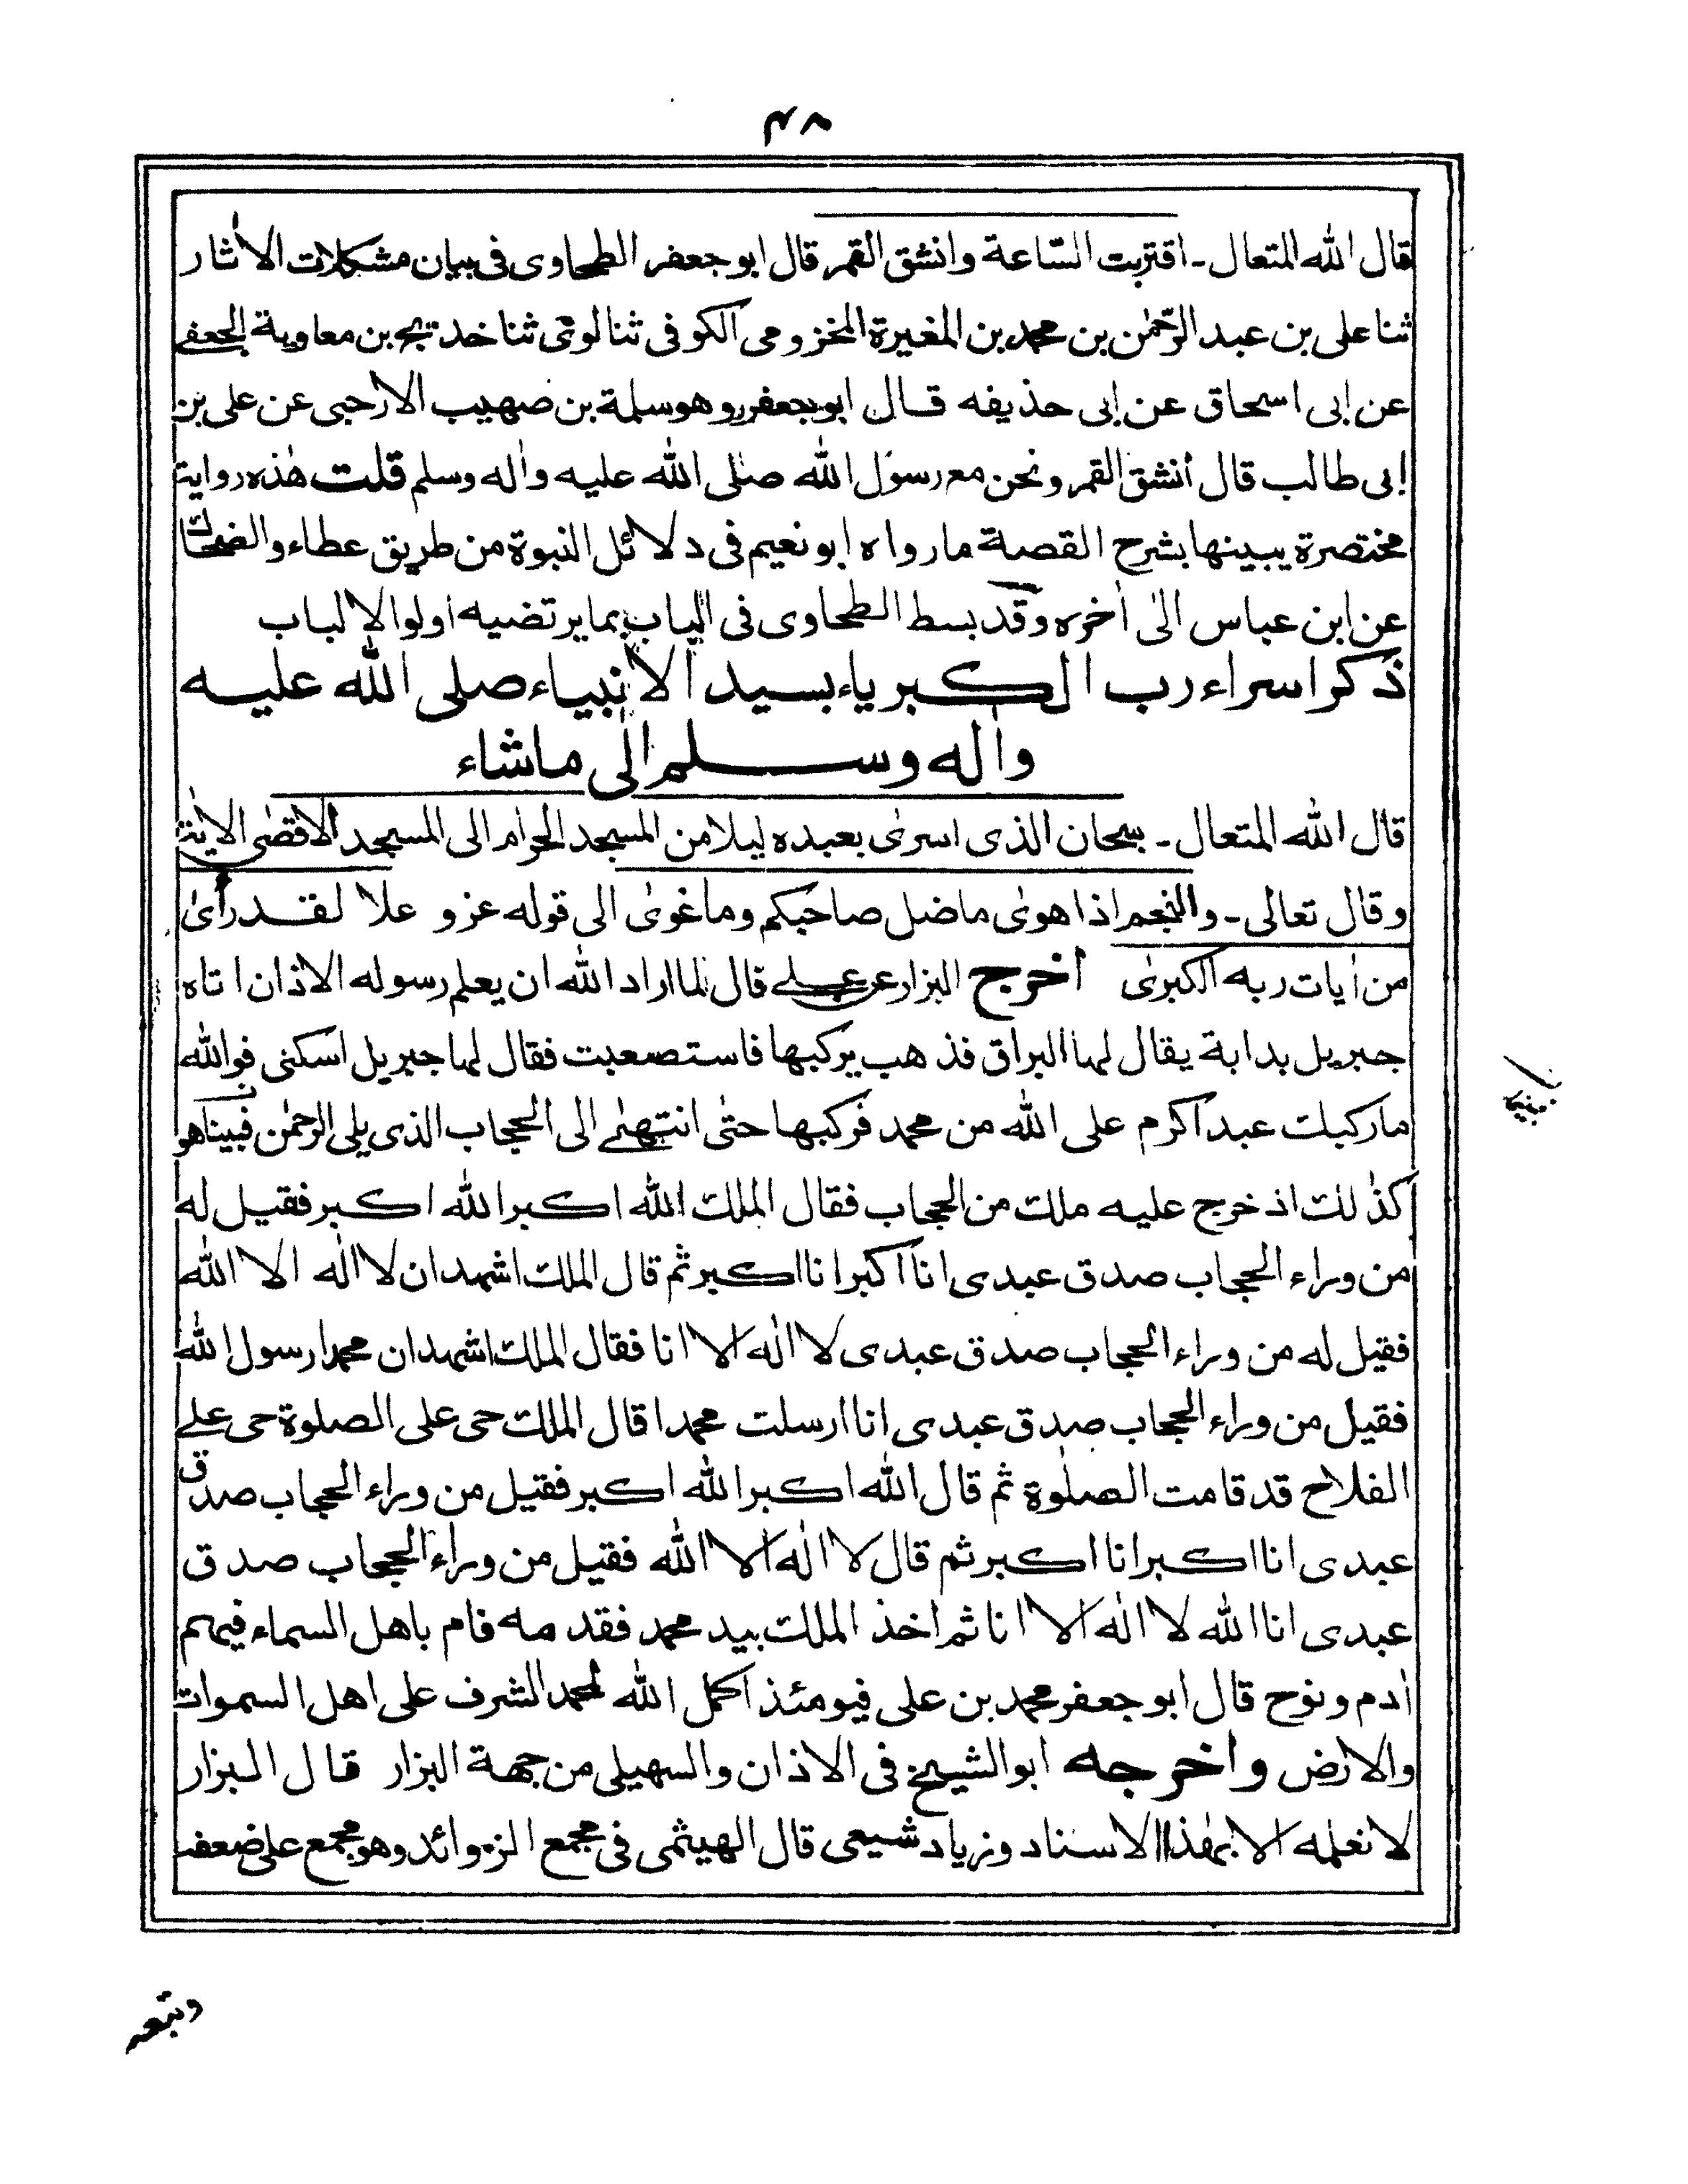 ٤٨
قال الله المتعال ـ اقتربت السّاعة وانشق القمر قال ابو جعفر الطحاوى فى بيان مشكلات الاٰثار
ثنا على بن عبد الرّحمٰن بن محمد بن المغيرة المخزومى الكوفى ثنا لوئى ثنا خديج بن معاوية الجعفى
عن ابى اسحاق عن ابى حذيفه قال ابو جعفر وهو سلمة بن صهيب الارحبى عن على بن
ابى طالب قال انشق القمر ونحن مع رسول الله صلى الله عليه واٰله وسلم قلت هٰذه رواية
مختصرة يبينها بشرح القصة ما رواه ابو نعيم فى دلائل النبوة من طريق عطاء والضحاك
عن ابن عباس الىٰ اٰخره وقد بسط الطحاوى فى الباب بما يرتضيه اولوا الالباب
ذكر اسراء رب الكبرياء بسيد الانبياء صلى الله عليه
واٰله وسلم الىٰ ماشاء
قال الله المتعال ـ سبحان الذى اسرىٰ بعبده ليلا من المسجد الحرام الى المسجد الاقصٰى الاية
وقال تعالى ـ والنجم اذا هوىٰ ماضل صاحبكم وما غوىٰ الى قوله عز و علا لقد راٰى
من اٰيات ربه الكبرىٰ اخرج البزار عن على قال لما اراد الله ان يعلم رسوله الاذان اتاه
جبريل بدابة يقال لها البراق فذهب يركبها فاستصعبت فقال لها جبريل اسكنى فوالله
ماركبك عبد اكرم على الله من محمد فركبها حتىٰ انتهىٰ الى الحجاب الذى يلى الرحمٰن فبينا هو
كذٰلك اذ خرج عليه ملك من الحجاب فقال الملك الله اكبر الله اكبر فقيل له
من وراء الحجاب صدق عبدى انا اكبر انا اكبر ثم قال الملك اشهد ان لا الٰه الا الله
فقيل له من وراء الحجاب صدق عبدى لا الٰه الا انا فقال الملك اشهد ان محمدا رسول الله
فقيل من وراء الحجاب صدق عبدى انا ارسلت محمدا قال الملك حى على الصلوة حى على
الفلاح قد قامت الصلٰوة ثم قال الله اكبر الله اكبر فقيل من وراء الحجاب صدق
عبدى انا اكبر انا اكبر ثم قال لا الٰه الا الله فقيل من وراء الحجاب صدق
عبدى انا الله لا الٰه الا انا ثم اخذ الملك بيد محمد فقدمه فام باهل السماء فيهم
اٰدم ونوح قال ابو جعفر محمد بن على فيومئذ اكمل الله لمحمد الشرف على اهل السموات
والارض واخرجه ابو الشيخ فى الاذان والسهيلى من جهة البزار قال البزار
لا نعلمه الا بهٰذا الاسناد وزياد شيعى قال الهيثمى فى مجمع الزوائد وهو مجمع على ضعفه